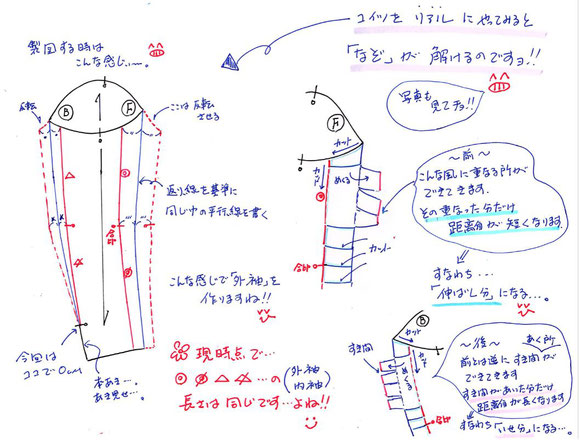 コイツをリアルにやってみると
「なぞ」が解けるのですョ!!
製図する時は
こんな感じぃ〜。
反転
ここは反転
させる
B
F
返り線を基準に
同じ巾の平行線を書く
合印
今回は
ココで0cm
本あき…
あき見せ…。
こんな感じで「外袖」を
作りますね!!
現時点で…
◎ ∅ △ …の(外袖
内袖)
長さは同じです…よね!!
写真も
見てチョ!!
F
カット
カット
めくる
カット
合印
〜前〜
こんな風に重なる所が
できてきます。
その重なった分だけ
距離が短くなります。
すなわち…
「伸ばし分」になる…。
B
カット
カット
めくる
すき間
合印
〜後〜
あく所
前とは逆にすき間が
できてきます
すき間があいた分だけ
距離が長くなります
すなわち「いせ分」になる…。